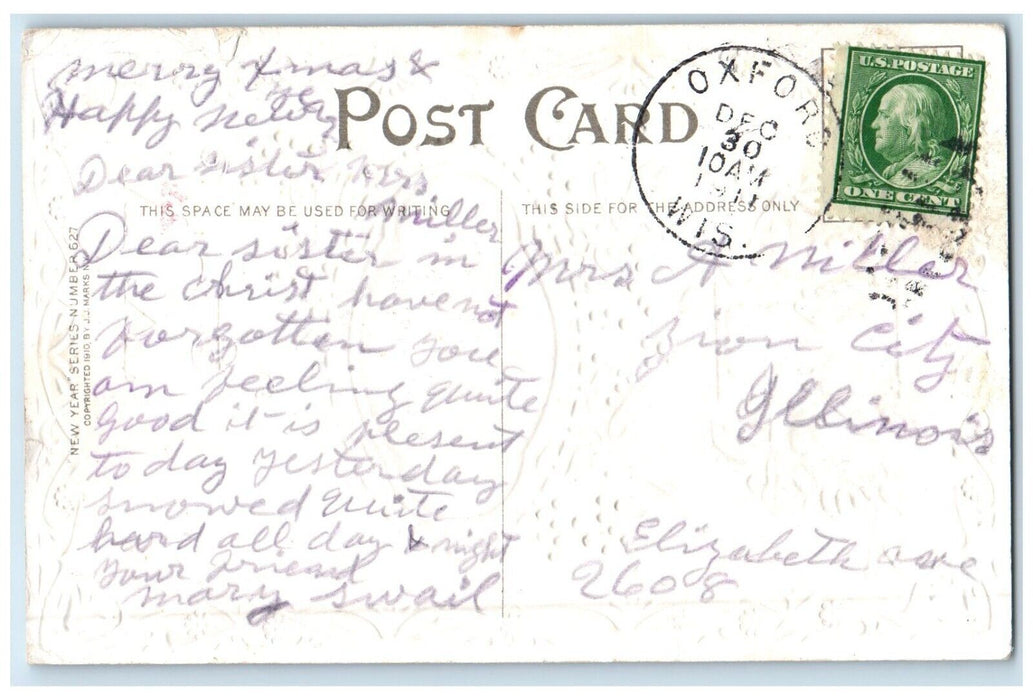 merry Xmas &
Happy New
year
POST CARD
Dear sister Mrs
Miller
THIS SPACE MAY BE USED FOR WRITING
Dear sister in
the Christ havent
forgotten you
am feeling quite
Good it is plesent
to day yesterday
snowed quite
hard all day & night
your frieand
mary swail
"NEW YEAR" SERIES NUMBER 627
COPYRIGHTED 1910, BY J.J. MARKS N.
OXFORD
DEC
30
10AM
1911
WIS.
U.S. POSTAGE
ONE CENT
THIS SIDE FOR THE ADDRESS ONLY
Mrs A Miller
Zion City
Illinois
Elizabeth ave
2608